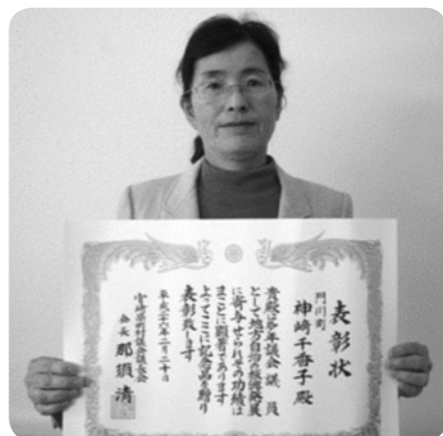 表彰状
門川町
神﨑千香子殿
貴殿は多年議会議員
として地方自治の振興発展
に寄与せられその功績は
まことに顕著であります
よってここに記念品を贈り
表彰致します
平成二十六年二月二十日
宮崎県町村議会議長会
会長 那須 清